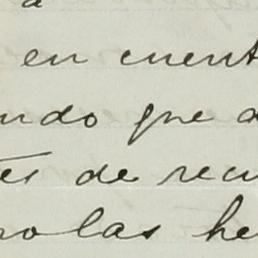 a
en cuent
ndo que a
tes de recu
rolas he